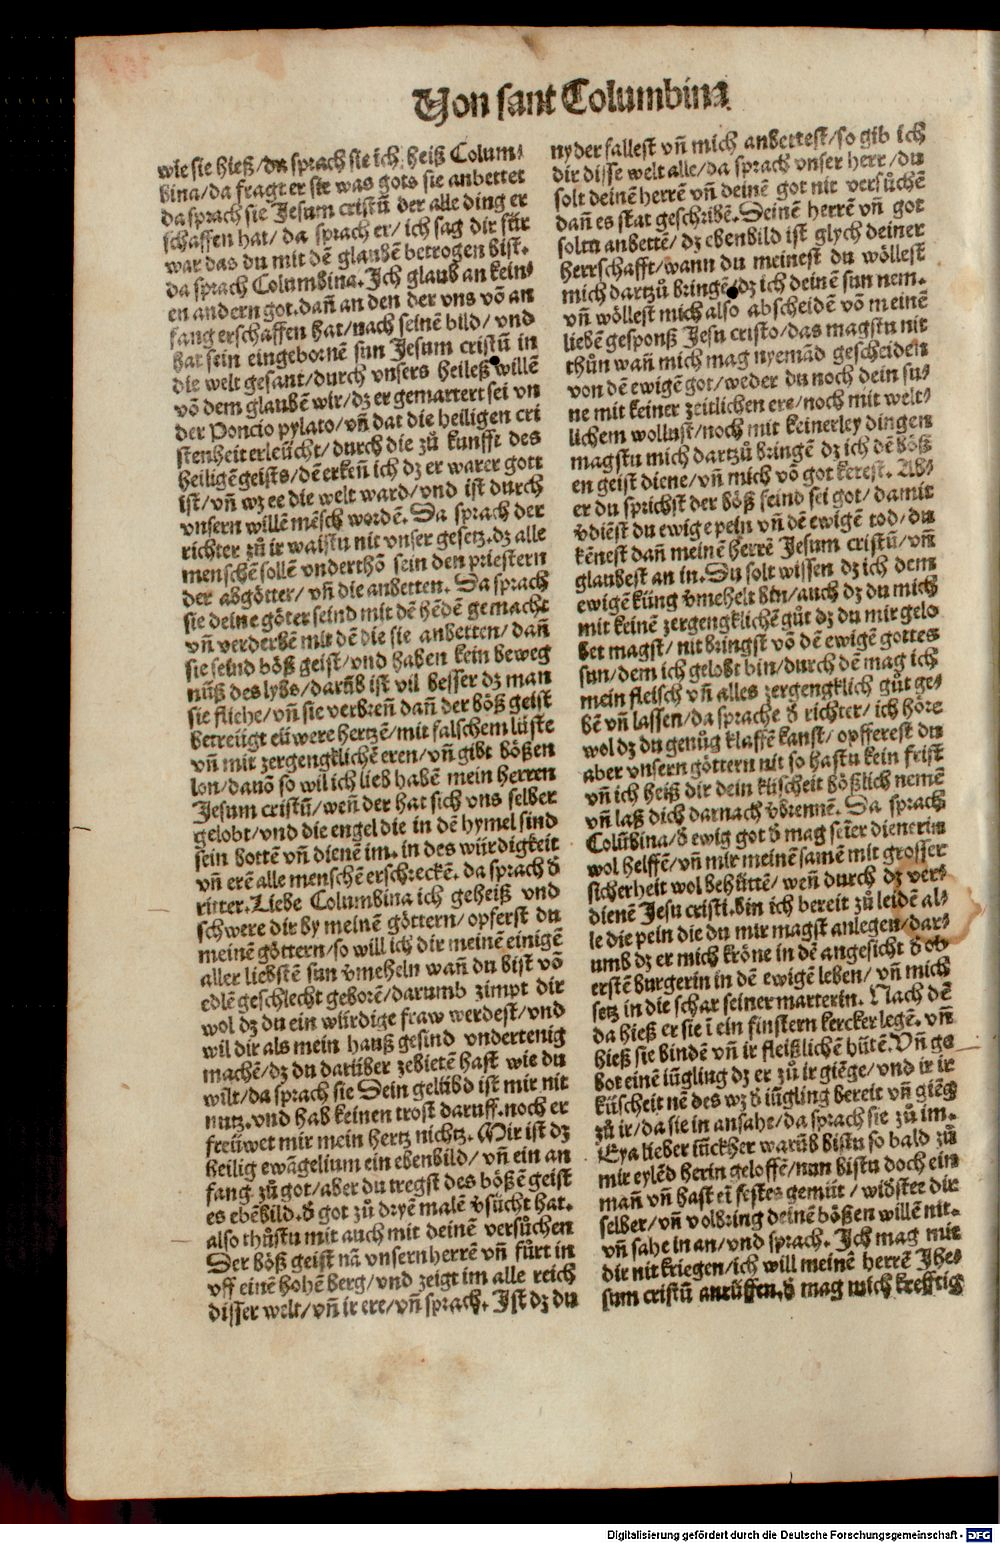 Von sant Columbina
wie sie hieß/da sprach sie ich heiß Colum⸗
bina/da fragt er sie was gots sie anbettet
da sprach sie Jesum cristū der alle ding er
schaffen hat/ da sprach er/ ich sag dir für
war das du mit dē glaubē betrogen bist.
da sprach Columbina. Ich glaub an kein⸗
en andern got. dañ an den der vns vō an
fang erschaffen hat/nach seinē bild/ vnd
hat sein eingebornē sun Jesum cristū in
die welt gesant/durch vnsers heileß willē
vō dem glaubē wir/dz er gemartert sei vn
der Poncio pylato/vñ dat die heiligen cri
stenheit erleücht/durch die zů kunfft des
heiligē geists/dē erkeñ ich dz er warer gott
ist/vñ wz ee die welt ward/vnd ist durch
vnsern willē mēsch wordē. Da sprach der
richter zů ir waistu nit vnser gesetz. dz alle
menschē sollē vnderthō sein den priestern
der abgötter/ vñ die anbetten. Da sprach
sie deine göter seind mit dē hēdē gemacht
vñ verderbē mit dē die sie anbetten/ dañ
sie seind böß geist/vnd haben kein beweg
nüß des lybs/darūb ist vil besser dz man
sie fliehe/vñ sie verbreñ dañ der böß geist
betreügt eüwere hertzē/mit falschem lüste
vñ mit zergengklichē eren/vñ gibt bößen
lon/dauō so wil ich lieb habē mein herren
Jesum cristū/weñ der hat sich vns selber
gelobt/vnd die engel die in dē hymel sind
sein bottē vñ dienē im. in des würdigkeit
vñ erē alle menschē erschreckē. da sprach d̕
ritter. Liebe Columbina ich geheiß vnd
schwere dir by meinē göttern/opferst du
meinē göttern/so will ich dir meinē einigē
aller liebstē sun v̕meheln wañ du bist vō
edlē geschlecht geborē/darumb zimpt dir
wol dz du ein würdige fraw werdest/vnd
wil dir als mein hauß gesind vndertenig
machē/dz du darüber zebietē hast wie du
wilt/da sprach sie Dein gelübd ist mir nit
nutz. vnd hab keinen trost daruff. noch er
freüwet mir mein hertz nichtz. Mir ist dz
heilig ewāgelium ein ebenbild/ vñ ein an
fang zů got/aber du tregst des bößē geist
es ebēbild. d̕ got zů dryē malē v̕sücht hat.
also thůstu mit auch mit deinē versůchen
Der böß geist nā vnsern herrē vñ fůrt in
vff einē hohē berg/vnd zeigt im alle reich
disser welt/vñ ir ere/vñ sprach. Ist dz du
nyder fallest vñ mich anbettest/so gib ich
dir disse welt alle/da sprach vnser herr/du
solt deinē herrē vñ deinē got nit versůchē
dañ es stat geschribē. Deinē herrē vñ got
soltu anbettē/ dz ebenbild ist glych deiner
herrschafft/wann du meinest du wöllest
mich dartzů bringē/dz ich deinē sun nem.
vñ wöllest mich also abscheidē vō meinē
liebē gesponß Jesu cristo/das magstu nit
thůn wañ mich mag nyemād gescheiden
von dē ewigē got/weder du noch dein su⸗
ne mit keiner zeitlichen ere/noch mit welt⸗
lichem wollust/noch mit keinerley dingen
magstu mich dartzů bringē dz ich dē böß
en geist diene/vñ mich vō got kerest. Ab⸗
er du sprichst der böß feind sei got/ damit
v̕diēst du ewige pein vñ dē ewigē tod/du
kēnest dañ meinē herrē Jesum cristū/vñ
glaubest an in. Du solt wissen dz ich dem
ewigē küng v̕mehelt bin/auch dz du mich
mit keinē zergengklichē gůt dz du mir gelo
bet magst/ nit bringst vō dē ewigē gottes
sun/dem ich gelobt bin/durch dē mag ich
mein fleisch vñ alles zergengklich gůt ge⸗
bē vñ lassen/da sprache d̕ richter/ ich höre
wol dz du genůg klaffē kanst/ opfferest du
aber vnsern göttern nit so hastu kein frist
vñ ich heiß dir dein küscheit bößlich nemē
vñ laß dich darnach v̕brennē. Da sprach
Colūbina/d̕ ewig got d̕ mag seīer dienerin
wol helffē/vñ mir meinē samē mit grosser
sicherheit wol behüttē/ weñ durch dz ver⸗
dienē Jesu cristi. bin ich bereit zů leidē al⸗
le die pein die du mir magst anlegen/dar⸗
umb dz er mich kröne in dē angesicht d̕ ob
erstē burgerin in dē ewigē leben/ vñ mich
setz in die schar seiner marterin. Nach dē
da hieß er sie ī ein finstern kercker legē. vñ
hieß sie bindē vñ ir fleißlichē hütē. Vñ ge
bot einē iūgling dz er zů ir giēge/vnd ir ir
küscheit nē des wz d̕ iūgling bereit vñ giēg
zů ir/da sie in ansahe/da sprach sie zů im.
Eya lieber iūckher warūb bistu so bald zů
mir eylēd herin geloffē/nun bistu doch ein
mañ vñ hast eī festes gemüt / wid̕stee dir
selber/vñ volbring deinē bößen willē nit.
vñ sahe in an/vnd sprach. Ich mag mit
dir nit kriegen/ich will meinē herrē Jhe⸗
sum cristū anrüffen. d̕ mag mich krefftig
Digitalisierung gefördert durch die Deutsche Forschungsgemeinschaft - DFG